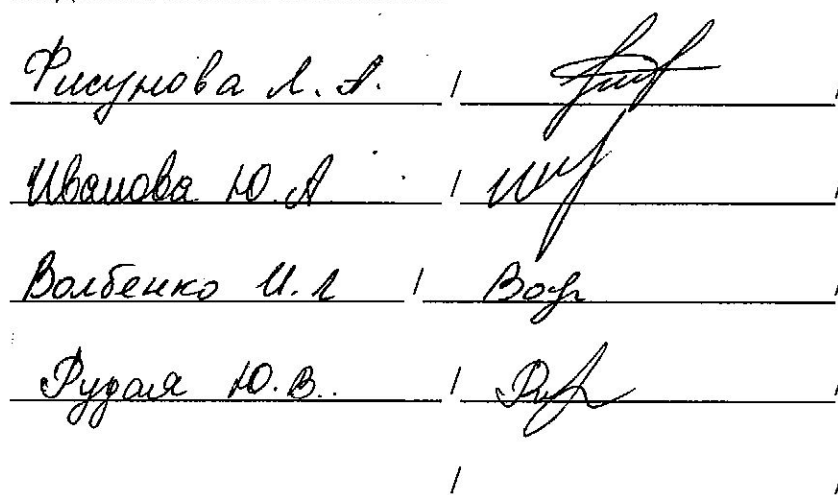 Фисунова Л. А. / /
Иванова Ю. А / /
Волбенко И. Л / /
Рудая Ю. В. / /
/ /